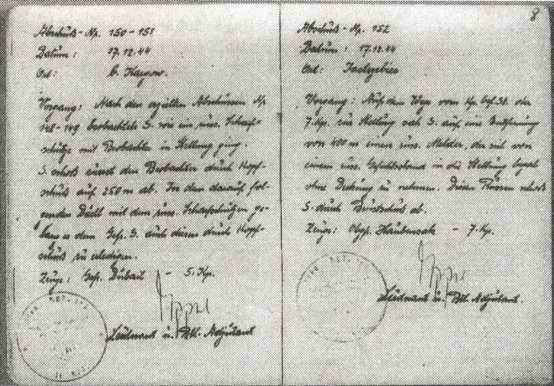 Abschuß-Np. 150-151
Datum: 17.12.44
Ort: b. Kaysow.
Vorgang: Nach den erzielten Abschüssen Np.
beobachtete S. wie ein russ. Scharf-
schütze mit Beobachter in Stellung ging.
S. schoß zuerst den Beobachter durch Kopf-
schuß auf 250 m ab. In dem darauf fol-
genden Duell mit dem russ. Scharfschützen ge-
lang es dem Gef. S. auch diesen durch Kopf-
schuß zu erledigen.
Zeuge: Gef. - 5. Kp.
Leutnant u. Btl. Adjutant
8
Abschuß-Np. 152
Datum: 17.12.44
Ort:
Vorgang: Auf dem Weg vom Kp. Gef. St. der
7. Kp. zur Stellung sah S. auf eine Entfernung
von 400 m einen russ. Melder, der sich von
einem russ. Gefechtsstand in die Stellung begab
ohne Deckung zu nehmen. Diesen Russen schoß
S. durch Brustschuß ab.
Zeuge: - 7. Kp.
Leutnant u. Btl. Adjutant.